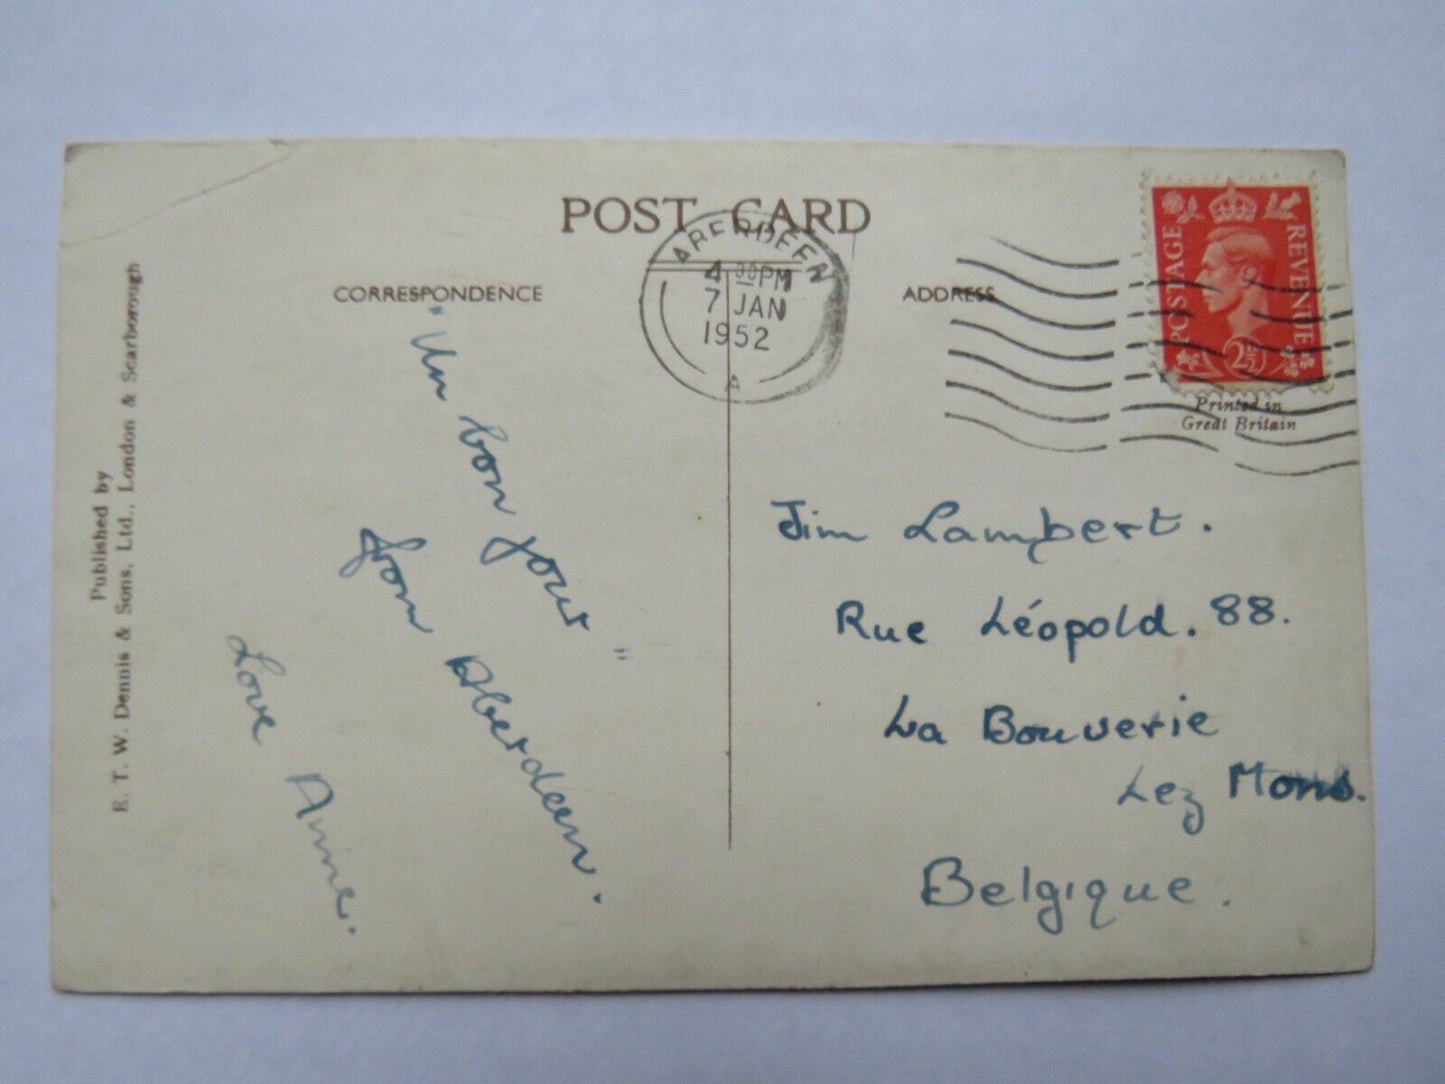 POST CARD
CORRESPONDENCE
ADDRESS
ABERDEEN
4 30PM
7 JAN
1952
A
POSTAGE
REVENUE
2½D
Printed in
Great Britain
Published by
E. T. W. Dennis & Sons, Ltd., London & Scarborough
"Un bon jour"
from Aberdeen.
Love Anne.
Jim Lambert.
Rue Léopold. 88.
La Bouverie
Lez Mons.
Belgique.